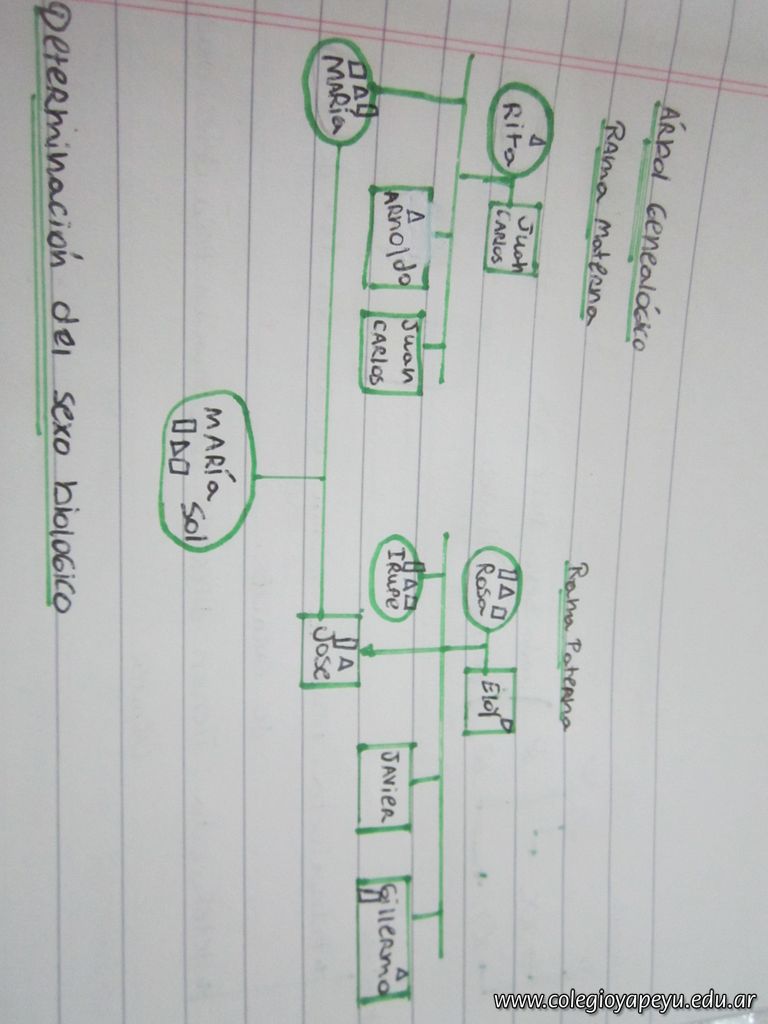 Árbol Genealógico
Rama Materna
Rama Paterna
Rita
Juan
CARLOS
Rosa
Eloy
MARÍA
ARNOldo
Juan
CARLOS
IRUPE
Jose
JAVIER
Gillermo
MARÍA
Sol
Determinación del sexo biologico
www.colegioyapeyu.edu.ar